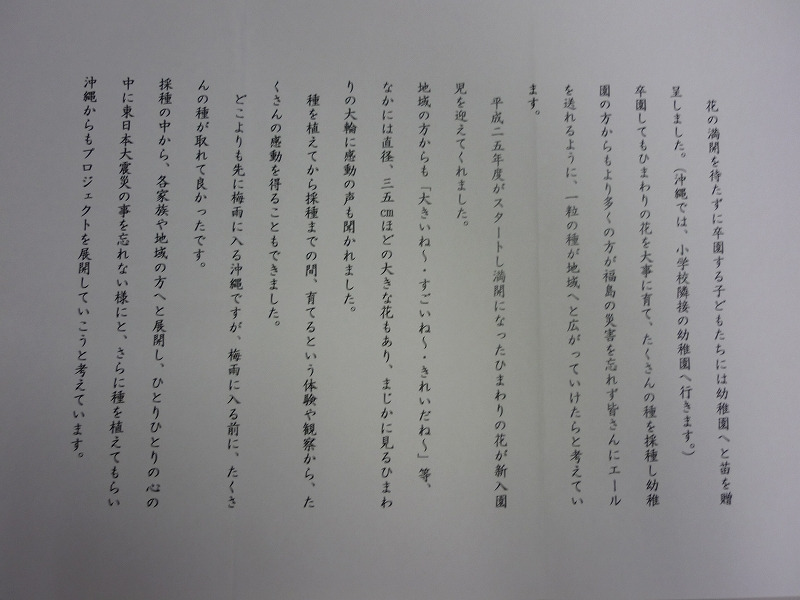 花の満開を待たずに卒園する子どもたちには幼稚園へと苗を贈
呈しました。（沖縄では、小学校隣接の幼稚園へ行きます。）
卒園してもひまわりの花を大事に育て、たくさんの種を採種し幼稚
園の方からもより多くの方が福島の災害を忘れず皆さんにエール
を送れるように、一粒の種が地域へと広がっていけたらと考えてい
ます。
平成二五年度がスタートし満開になったひまわりの花が新入園
児を迎えてくれました。
地域の方からも「大きいね～・すごいね～・きれいだね～」等、
なかには直径、三五㎝ほどの大きな花もあり、まじかに見るひまわ
りの大輪に感動の声も聞かれました。
種を植えてから採種までの間、育てるという体験や観察から、た
くさんの感動を得ることもできました。
どこよりも先に梅雨に入る沖縄ですが、梅雨に入る前に、たくさ
んの種が取れて良かったです。
採種の中から、各家族や地域の方へと展開し、ひとりひとりの心の
中に東日本大震災の事を忘れない様にと、さらに種を植えてもらい
沖縄からもプロジェクトを展開していこうと考えています。